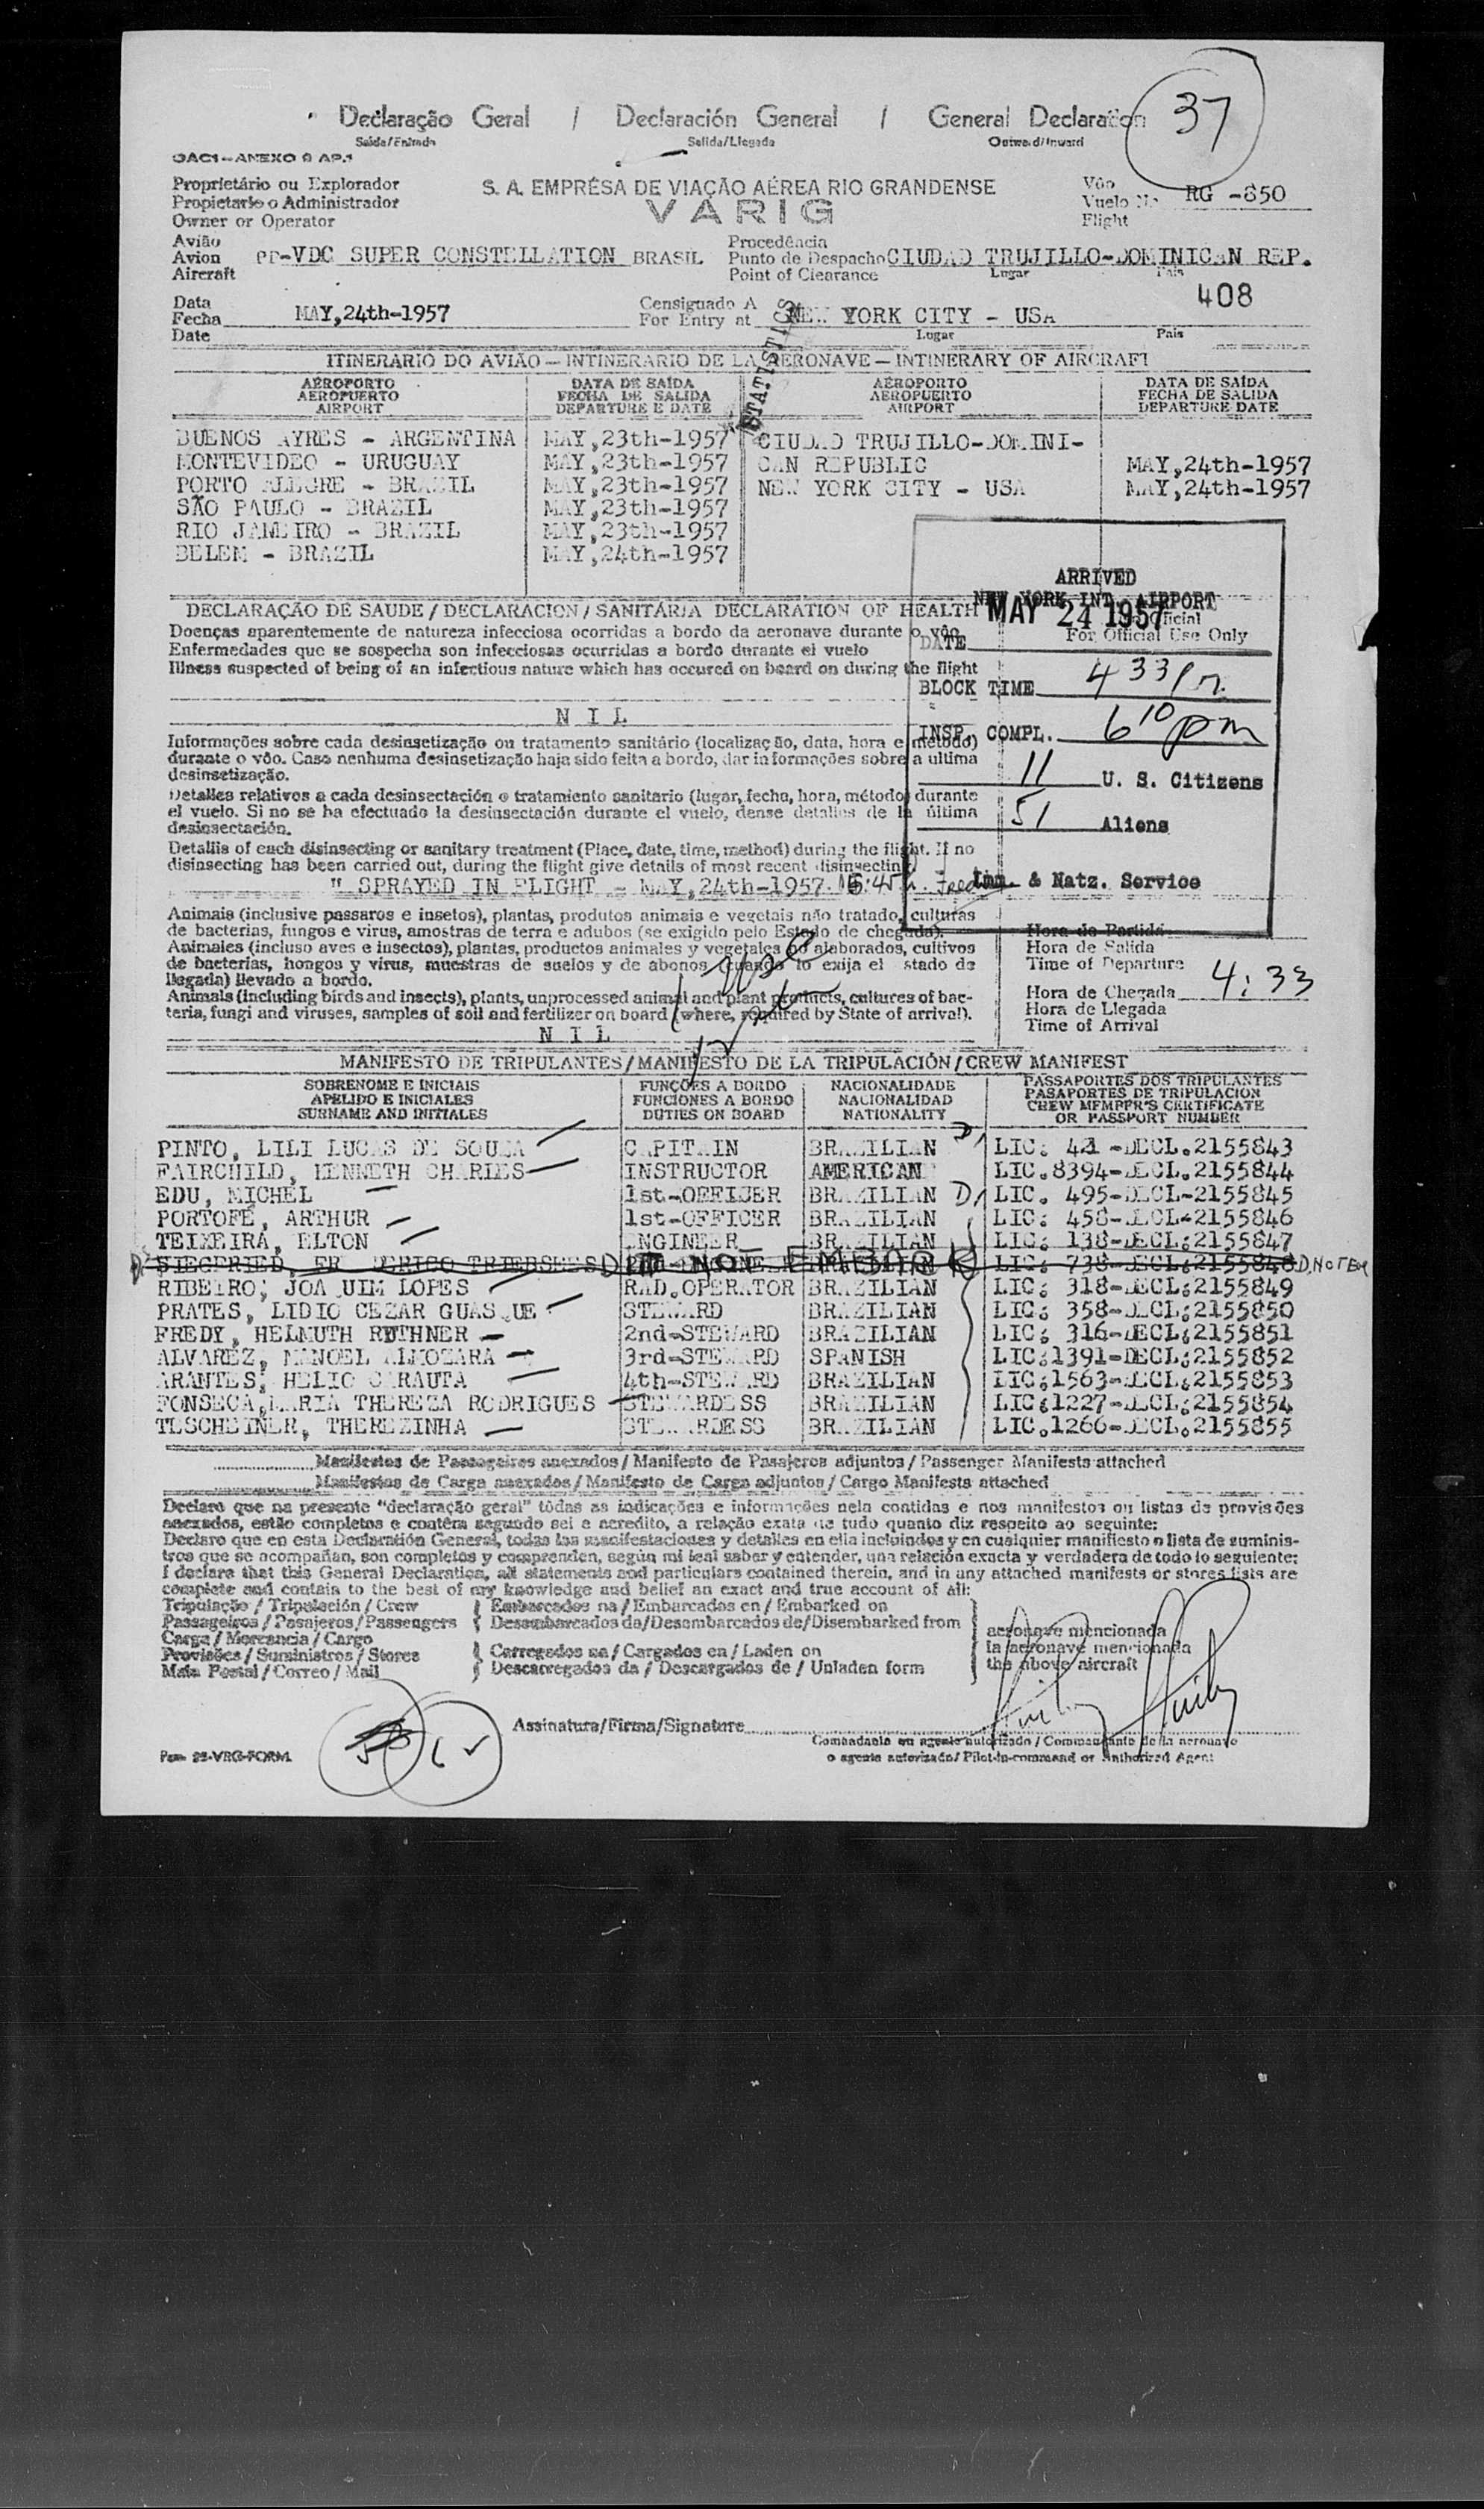 37
Declaração Geral / Declaración General / General Declaration
Saida/Entrada Salida/Llegada Outward/Inward
OACI-ANEXO 9 AP.1
Proprietário ou Explorador
Propietario o Administrador
Owner or Operator
S. A. EMPRÊSA DE VIAÇÃO AÉREA RIO GRANDENSE
VARIG
Vôo
Vuelo No
Flight
RG -850
Avião
Avion
Aircraft
PP-VDC SUPER CONSTELLATION BRASIL
Procedência
Punto de Despacho
Point of Clearance
CIUDAD TRUJILLO-DOMINICAN REP.
Lugar País
408
Data
Fecha
Date
MAY,24th-1957
Consignado A
For Entry at
NEW YORK CITY - USA
Lugar País
STATISTICS
ITINERARIO DO AVIÃO — INTINERARIO DE LA AERONAVE — INTINERARY OF AIRCRAFT
AÉROPORTO
AEROPUERTO
AIRPORT
DATA DE SAÍDA
FECHA DE SALIDA
DEPARTURE E DATE
AÉROPORTO
AEROPUERTO
AIRPORT
DATA DE SAÍDA
FECHA DE SALIDA
DEPARTURE DATE
BUENOS AYRES - ARGENTINA MAY,23th-1957 CIUDAD TRUJILLO-DOMINI-
MONTEVIDEO - URUGUAY MAY,23th-1957 CAN REPUBLIC MAY,24th-1957
PORTO ALEGRE - BRAZIL MAY,23th-1957 NEW YORK CITY - USA MAY,24th-1957
SÃO PAULO - BRAZIL MAY,23th-1957
RIO JANEIRO - BRAZIL MAY,23th-1957
BELEM - BRAZIL MAY,24th-1957
ARRIVED
NEW YORK INT. AIRPORT
MAY 24 1957
DATE
BLOCK TIME 4 33
INSP. COMPL. 6 10 pm
11 U. S. Citizens
51 Aliens
Imm. & Natz. Service
DECLARAÇÃO DE SAUDE / DECLARACION / SANITÁRIA DECLARATION OF HEALTH
Official
For Official Use Only
Doenças aparentemente de natureza infecciosa ocorridas a bordo da aeronave durante o vôo
Enfermedades que se sospecha son infecciosas ocurridas a bordo durante el vuelo
Illness suspected of being of an infectious nature which has occured on board on during the flight
N I L
Informações sobre cada desinsetização ou tratamento sanitário (localização, data, hora e método)
durante o vôo. Caso nenhuma desinsetização haja sido feita a bordo, dar informações sobre a ultima
desinsetização.
Detalles relativos a cada desinsectación o tratamiento sanitario (lugar, fecha, hora, método) durante
el vuelo. Si no se ha efectuado la desinsectación durante el vuelo, dense detalles de la última
desinsectación.
Detallis of each disinsecting or sanitary treatment (Place, date, time, method) during the flight. If no
disinsecting has been carried out, during the flight give details of most recent disinsecting
" SPRAYED IN FLIGHT - MAY,24th-1957
Animais (inclusive passaros e insetos), plantas, produtos animais e vegetais não tratado, culturas
de bacterias, fungos e virus, amostras de terra e adubos (se exigido pelo Estado de chegada).
Animales (incluso aves e insectos), plantas, productos animales y vegetales no alaborados, cultivos
de bacterias, hongos y virus, muestras de suelos y de abonos (cuando lo exija el stado de
llegada) llevado a bordo.
Animals (including birds and insects), plants, unprocessed animal and plant products, cultures of bac-
teria, fungi and viruses, samples of soil and fertilizer on board (where, required by State of arrival).
N I L
Hora de Partida
Hora de Salida
Time of Departure
Hora de Chegada 4:33
Hora de Llegada
Time of Arrival
MANIFESTO DE TRIPULANTES / MANIFESTO DE LA TRIPULACIÓN / CREW MANIFEST
SOBRENOME E INICIAIS
APELIDO E INICIALES
SURNAME AND INITIALES
FUNÇÕES A BORDO
FUNCIONES A BORDO
DUTIES ON BOARD
NACIONALIDADE
NACIONALIDAD
NATIONALITY
PASSAPORTES DOS TRIPULANTES
PASAPORTES DE TRIPULACION
CREW MEMBER'S CERTIFICATE
OR PASSPORT NUMBER
PINTO, LILI LUCAS DE SOUZA CAPITAIN BRAZILIAN LIC: 42 -DECL.2155843
FAIRCHILD, KENNETH CHARLES INSTRUCTOR AMERICAN LIC.8394-DECL.2155844
EDU, MICHEL 1st-OFFICER BRAZILIAN LIC. 495-DECL-2155845
PORTOFÉ, ARTHUR 1st-OFFICER BRAZILIAN LIC: 458-DECL-2155846
TEIXEIRA, ELTON ENGINEER BRAZILIAN LIC: 138-DECL:2155847
SIEGFRIED, FREDERICO DID NOT EMBARK LIC: 738-DECL:2155848 D.NOT EM
RIBEIRO, JOAQUIM LOPES RAD.OPERATOR BRAZILIAN LIC: 318-DECL:2155849
PRATES, LIDIO CEZAR GUASQUE STEWARD BRAZILIAN LIC: 358-DECL:2155850
FREDY, HELMUTH RUTHNER 2nd-STEWARD BRAZILIAN LIC: 316-DECL:2155851
ALVAREZ, MANOEL ALMOZARA 3rd-STEWARD SPANISH LIC:1391-DECL:2155852
ARANTES, HELIO CARAUTA 4th-STEWARD BRAZILIAN LIC:1563-DECL:2155853
FONSECA,MARIA THEREZA RODRIGUES STEWARDESS BRAZILIAN LIC:1227-DECL:2155854
TESCHEINER, THEREZINHA STEWARDESS BRAZILIAN LIC.1266-DECL.2155855
Manifestos de Passageiros anexados / Manifesto de Pasajeros adjuntos / Passenger Manifests attached
Manifestos de Carga anexados / Manifesto de Carga adjuntos / Cargo Manifests attached
Declaro que na presente "declaração geral" tôdas as indicações e informações nela contidas e nos manifestos ou listas de provisões
anexados, estão completos e contêm segundo sei e acredito, a relação exata de tudo quanto diz respeito ao seguinte:
Declaro que en esta Declaratión General, todas las manifestaciones y detalles en ella incluindos y en cualquier manifiesto o lista de suminis-
tros que se acompañan, son completos y comprenden, según mi leal saber y entender, una relación exacta y verdadera de todo lo seguiente:
I declare that this General Declaration, all statements and particulars contained therein, and in any attached manifests or stores lists are
complete and contain to the best of my knowledge and belief an exact and true account of all:
Tripulação / Tripulación / Crew
Passageiros / Pasajeros / Passengers
Carga / Mercancia / Cargo
Provisões / Suministros / Stores
Mala Postal / Correo / Mail
Embarcados na / Embarcados en / Embarked on
Desembarcados da/Desembarcados de/Disembarked from
Carregados na / Cargados en / Laden on
Descarregados da / Descargados de / Unladen form
aeronave mencionada
la aeronave mencionada
the above aircraft
Assinatura/Firma/Signature
Comandante ou agente autorizado / Commandante de la aeronave
o agente autorizado/ Pilot-in-command or Anthorized Agent
Pan- 25-VRG-FORM.